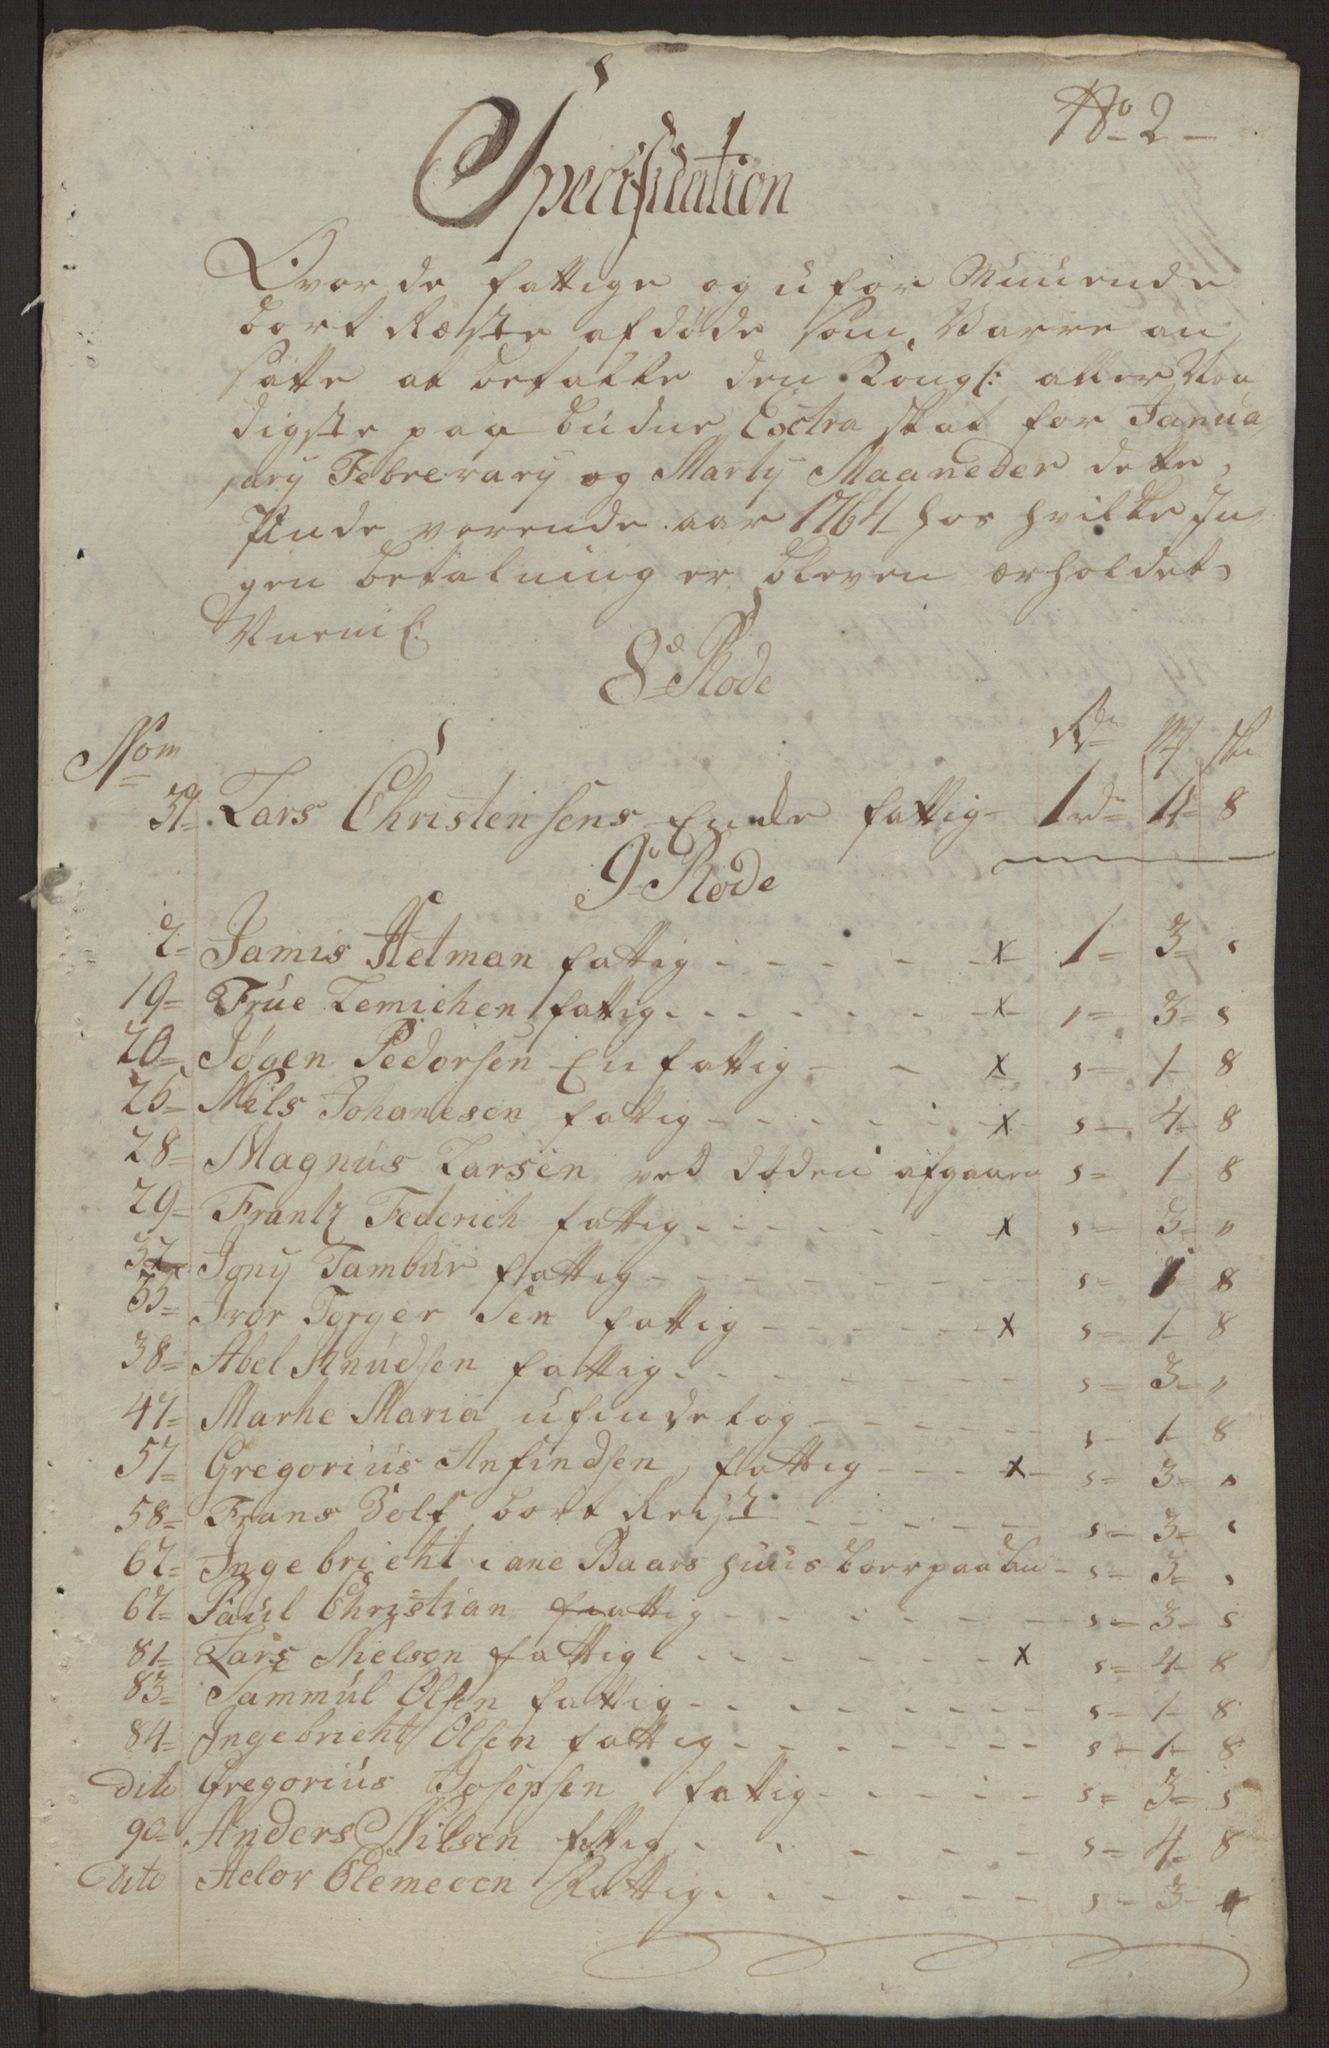 No 2
Specification
Over de fattige og ufor Muuende
bort Ræste afdøde som Varre an
satte at betalle den Kongl: aller Naa
digste paa budne Extra skat for Janua
ary Febrerary og Marty Maaneder dette
Inde verende aar 1764 hos hvilke In
gen betalning er bleven erholdet
Nneml:
8de Rode
Nom Rdr M sk
37 Lars Christensens Encke fattig 1rd 4 8
9de Rode
2 Jamis Hetman fattig x 1 3 s
19 Frue Lemichen fattig x 1 3 s
20 Jøgen Pedersen En fattig x s 1 8
26 Nils Johanesen fattig x s 4 8
28 Magnus Larsen ved døden afgaaen s 1 8
29 Frantz Federich fattig x s 3 "
32 Jony Tambur fattig s 1 8
35 Iver Torger Sen fattig x s 1 8
38 Abel Knudsen fattig s 3 "
47 Marhe Maria ufindelog s 1 8
57 Gregorius Anfindsen fattig x s 3 s
58 Frans Volf bort Reist s 3 s
67 Ingebricht i ane Baars huus s 3 s
67 Paul Christian fattig s 3 s
81 Lars Nielsen fattig x s 4 8
83 Sammul Olsen fattig s 1 8
84 Ingebricht Olsen fattig s 1 8
dito Gregorius Josepsen fattig s 3 s
90 Anders Nilsen fattig s 4 8
Dito Helor Clemeecn Fattig s 3